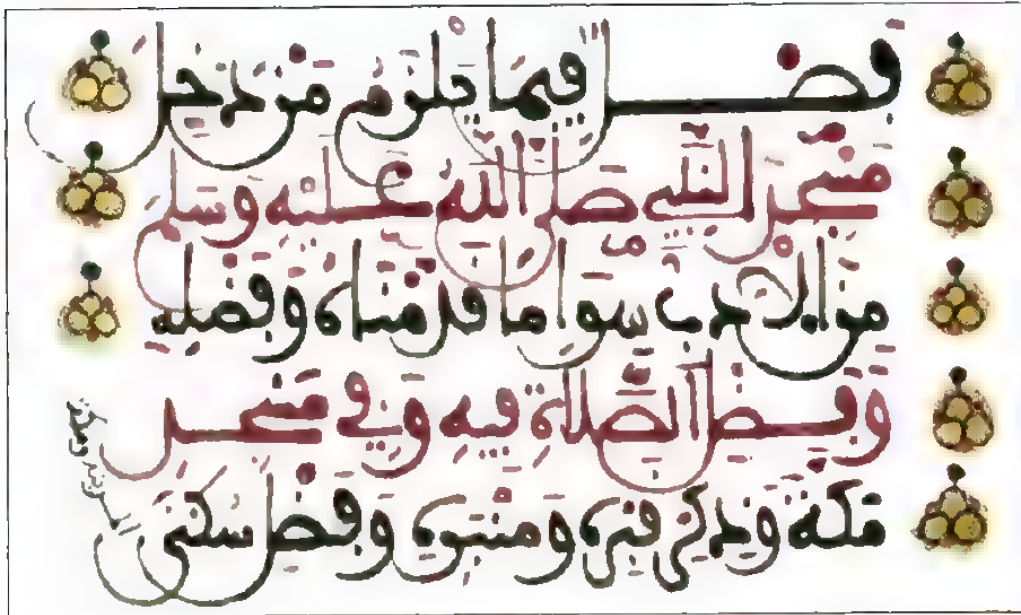 فصل فيما يلزم من دخل
مسجد النبي صلى الله عليه وسلم
من الادب سوا ما قدمناه وفضله
وفضل الصلاة فيه وفي مسجد
مكة وذكر قبره ومنبره وفضل سكنى
المدينة ومكة